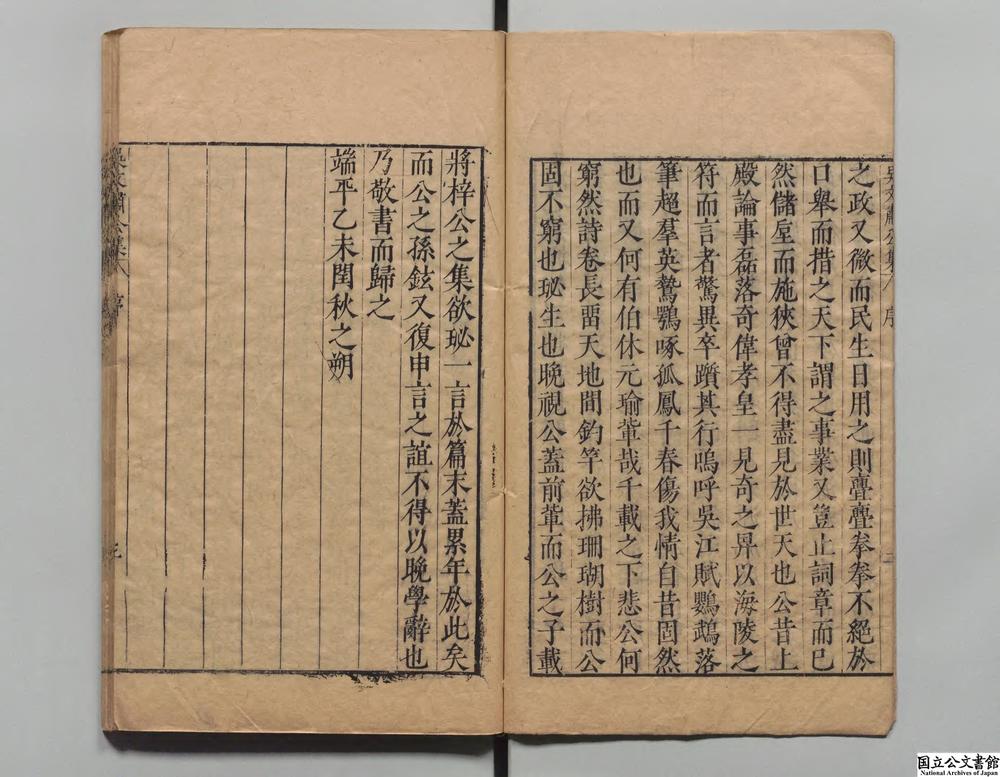 之政又微而民生日用之則亹亹拳拳不絕於
口舉而措之天下謂之事業又豈止詞章而已
然儲戹而施狹曾不得盡見於世天也公昔上
殿論事磊落奇偉孝皇一見奇之昇以海陵之
符而言者驚異卒躓其行嗚呼吳江賦鸚鵡落
筆超羣英鷙鶚啄孤鳳千春傷我情自昔固然
也而又何有伯休元瑜軰哉千載之下悲公何
窮然詩卷長畱天地間釣竿欲拂珊瑚樹而公
固不窮也珌生也晚視公蓋前軰而公之子載
將梓公之集欲珌一言於篇末蓋累年於此矣
而公之孫鉉又復申言之誼不得以晚學辭也
乃敬書而歸之
端平乙未閏秋之朔
序
序
国立公文書館
National Archives of Japan